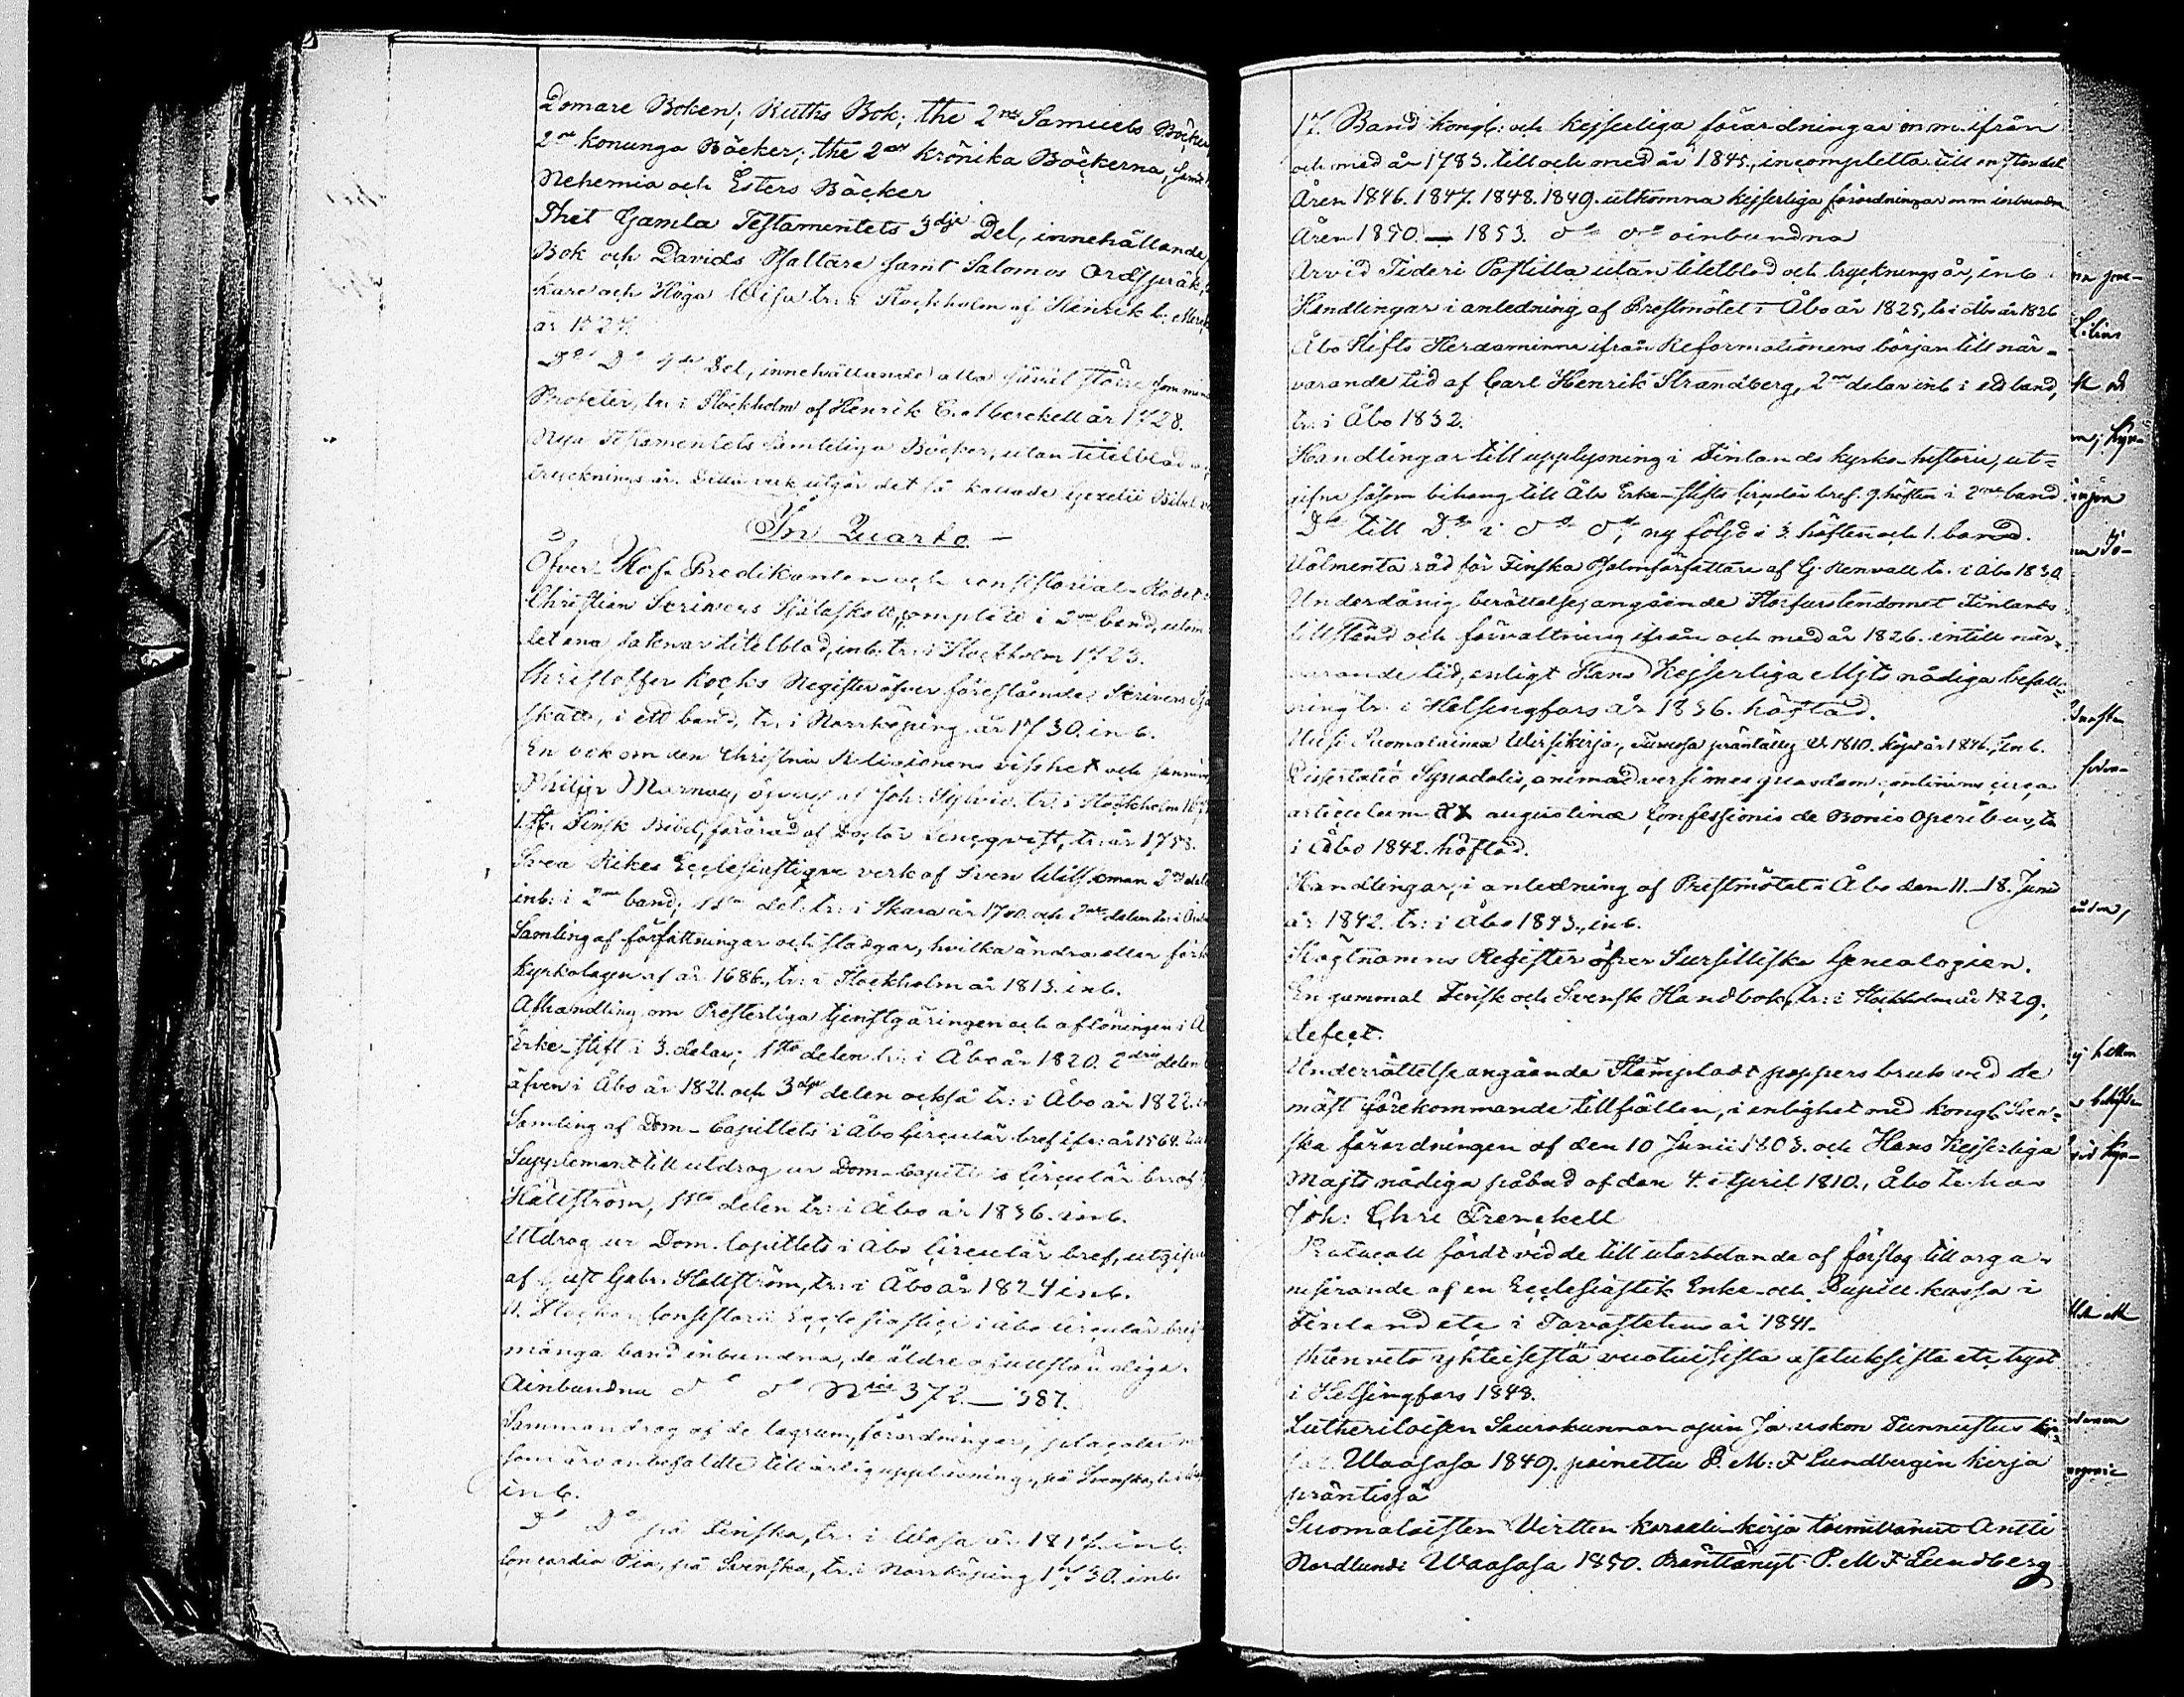 Domare Boken; Ruths Bok; the 2ne Samuels Böcker,
2ne konunga Böcker; the 2ne Krönika Böckerna, samt
Nehemia och Esters Böcker
Thet Gamla Testamentets 3dje Del, innehållande
Bok och Davids Psaltare samt Salomos Ordspråk,
kare och Höga Wisa tr: i Stockholm af Henrik C. Merck
år 1727.
Do Do 4de Del, innehållande alla såväl störe som min
Profeter, tr. i Stockholm af Henrik C. Merckell år 1728.
Nya Testamentets samteliga Böcker, utan titelblad
tryknings år. Detta verk utgör det så kallade Gezelii Bibel
In Quarto
Öfver-Hof-Predikanten och consistorial-Rådet
Christian Scrivers Själaskatt, complett i 2ne band, utom
det ena saknar titelblad, inb. tr. i Stockholm 1723.
Christoffer Kochs Register öfver förestående Scrivers Sjä
skatt, i ett band, tr. i Norrköping år 1730. inb.
En bok om den Christna Religionens visshet och sannin
Philip Marnay, öfvers. af Joh: Sylvio. tr. i Stockholm
1. st. Finsk Bibel, förärad af Doctor Lencqvist, tr: år 1758.
Svea Rikes Ecclesiastique verk af Sven Wilskman 2ne del
inb: i 2ne band; 1sta del. tr: i Skara år 1760. och 2dra delen tr: i Öreb
Samling af författningar och stadgar, hvilka ändra eller förk
kyrkolagen af år 1686., tr: i Stockholm år 1813. inb.
Afhandling om Presterliga tjenstgöringen och aflöningen i Å
Erke-stift i 3. delar; 1sta delen tr: i Åbo år 1820. 2dra delen
äfven i Åbo år 1821. och 3dje delen också tr: i Åbo år 1822.
Samling af Dom-Capitlets i Åbo Circulär bref ifr: år 1564.
Supplement till utdrag ur Dom-Capitlets Circulär bref af
Hällström, 1sta delen tr: i Åbo år 1836. inb.
Utdrag ur Dom-Capitlets i Åbo Circulär bref, utgifne
af Gust Gabr. Hällström, tr: i Åbo år 1824 inb.
Consistorii Ecclesiastici i Åbo Circulär bref
många band inbundna, de äldre ofullständiga.
Oinbundna do do Nris 372. — 387.
Sammandrag af de lagrum, förordningar, placater
som äro anbefaldte till årlig uppläsning, på Svenska,
inb.
Do Do på Finska, tr: i Wasa år 1817. inb.
Concordia Pia, på Svenska, tr. i Norrköping 1730. inb.
17. Band kongl: och kejserliga förordningar m.m. ifrån
och med år 1783. till och med år 1845., incompletta till en stor del
Åren 1846. 1847. 1848. 1849. utkomna kejserliga förordningar m.m inbundn
Åren 1850. — 1853. do do oinbundna
Arvid Tideri Postilla utan titelblad och tryckningsår, inb.
Handlingar i anledning af Prestmötet i Åbo år 1825, tr. i Åbo år 1826
Åbo Stifts Herdaminne ifrån Reformationens början till när-
varande tid af Carl Henrik Strandberg, 2ne delar inb i ett band,
tr: i Åbo 1832.
Handlingar till upplysning i Finlands kyrko-historie, ut-
gifne såsom bihang till Åbo Erke-stifts Circulär bref. 9. häften i 2ne band
Do till Do i do do, ny följd i 3. häften och 1. band.
Välmenta råd för Finska Psalmförfattare af G. Renvall tr. i Åbo 1830
Underdånig berättelse, angående Storfurstendömet Finlands
tillstånd och förvaltning ifrån och med år 1826. intill när-
varande tid, enligt Hans Kejserliga Mjts nådiga befall-
ning tr. i Helsingfors år 1836. häftad.
Uusi Suomalainen Wirsikirja, Turussa präntätty år 1810. köpt år 1846., inb.
Dissertatio Synodalis, animadversiones quasdam continens circa
articulum XX augustanæ Confessionis de Bonis Operibus, tr
i Åbo 1842. häftad.
Handlingar, i anledning af Prestmötet i Åbo den 11.–18. Junii
år 1842. tr: i Åbo 1843., inb.
Slägtnamns Register öfver Sursilliska Genealogien.
En gammal Finsk och Svensk Handbok, tr: i Stockholm år 1829.,
defect.
Underrättelse angående Stämpladt pappers bruk vid de
mäst förekommande tillfällen, i enlighet med kongl. Sven-
ska förordningen af den 10 Junii 1803. och Hans Kejserliga
Majts nådiga påbud af den 4. April 1810., Åbo tr. hos
Joh: Chr: Frenckell
Protocoll fördt vid de till utarbetande af förslag till orga-
niserande af en Ecclesiastik Enke- och Pupill-kassa i
Finland etc i Tavastehus år 1841.
yhteisestä vuotuisista asetuksista etc tryct
i Helsingfors 1848.
Lutheriloisen Seurakunnan opin Ja uskon Tunnustus kir-
jat. Waasasa 1849. painettu P. M: F Lundbergin kirja
präntissä
Suomalaisten Virtten koraali-kirja toimittanut Antti
Nordlund: Waasasa 1850. Pränttänyt P. M F Lundberg